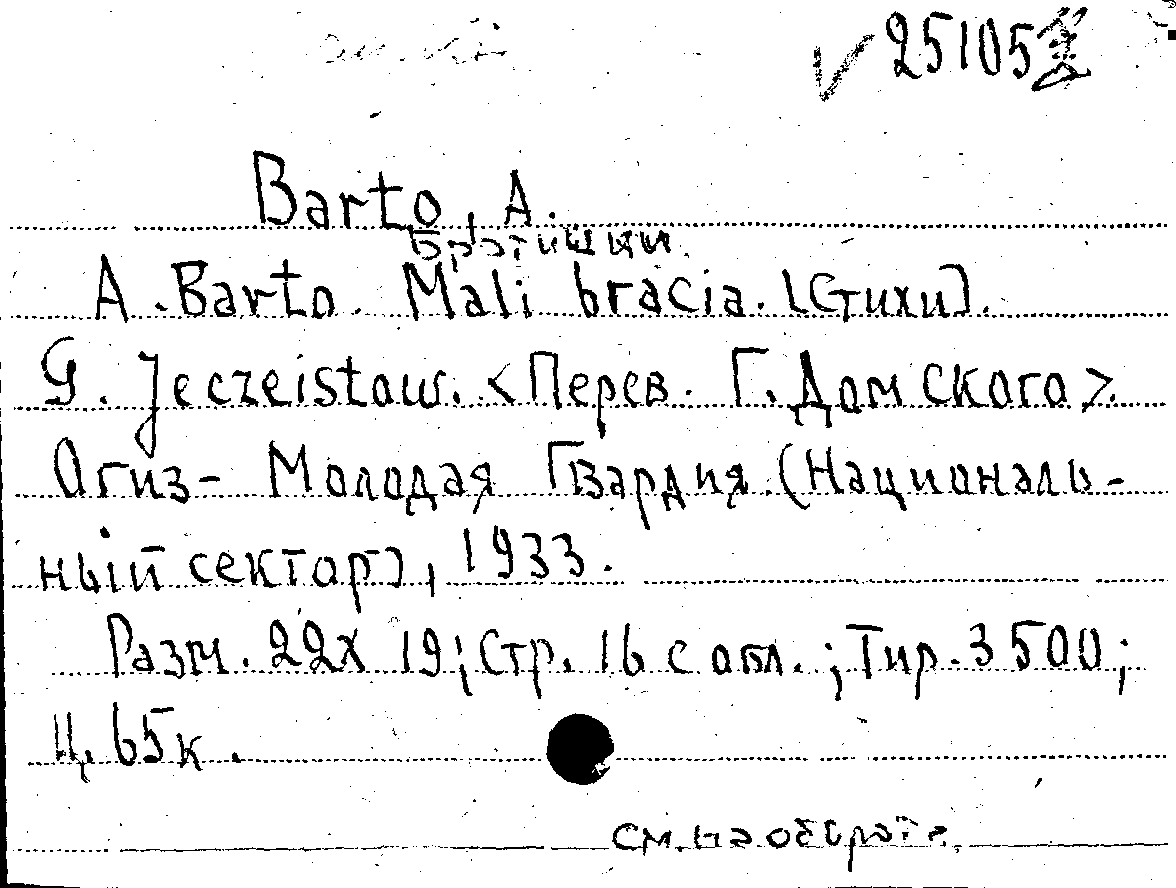 25105
Barto, A.
Братишки.
A. Barto. Mali bracia. [Стихи].
G. Jeczeistow. <Перев. Г. Домского>.
Огиз- Молодая Гвардия. (Националь-
ный сектор), 1933.
Разм. 22х19; Стр. 16 с обл.; Тир. 3500;
Ц. 65к.
см. на обороте.